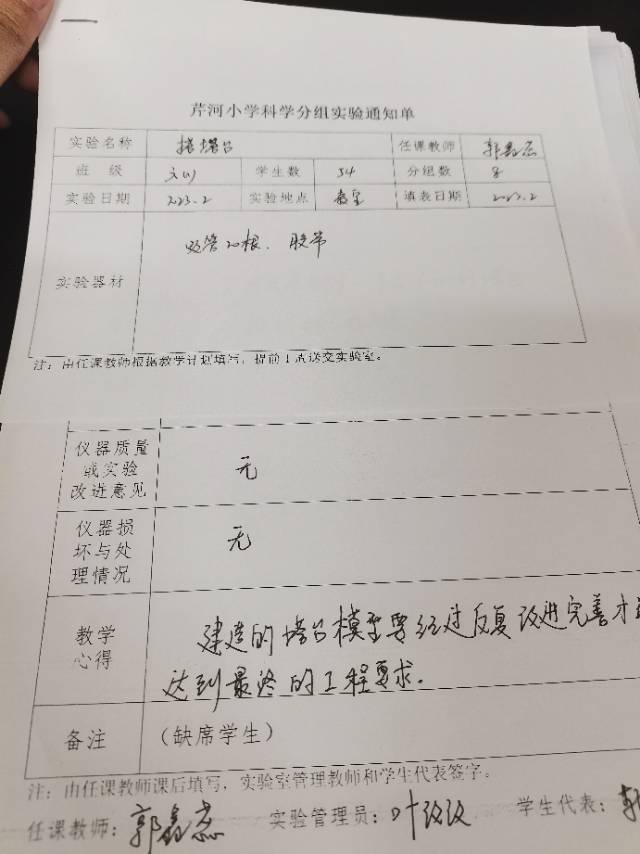 芹河小学科学分组实验通知单
实验名称 搭塔台 任课教师 郭鑫蕊
班 级 学生数 54 分组数 8
实验日期 2023.2 实验地点 教室 填表日期 2023.2
实验器材 吸管20根、胶带
注：由任课教师根据教学计划填写，提前1点送交实验室。
仪器质量
或实验
改进意见
无
仪器损
坏与处
理情况
无
教学
心得
建造的塔台模型要经过反复改进完善才
达到最终的工程要求.
备注 （缺席学生）
注：由任课教师课后填写，实验室管理教师和学生代表签字。
任课教师：郭鑫蕊 实验管理员：叶 学生代表：